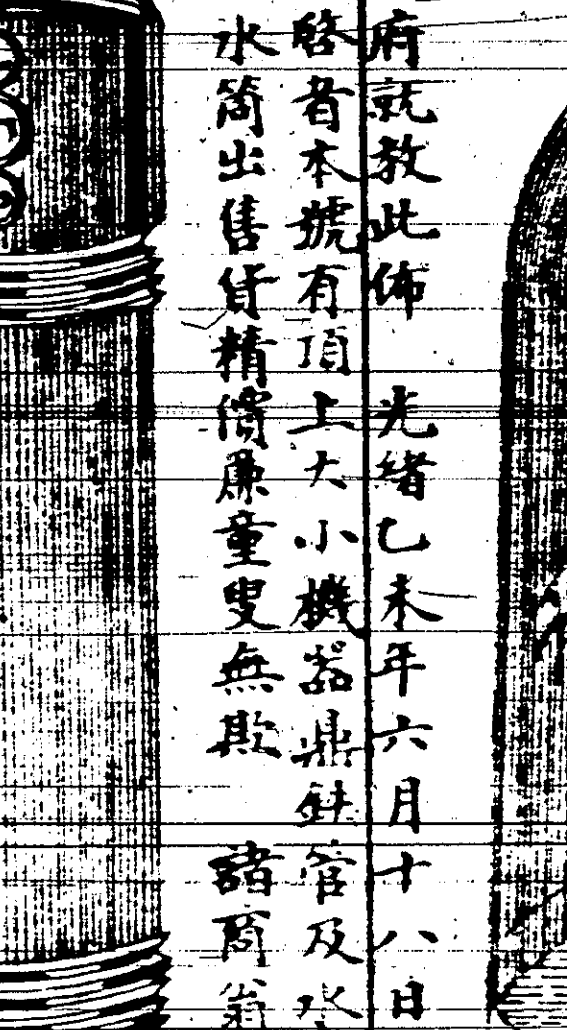 府就教此佈　光緒乙未年六月十八日
啓者本號有頂上大小機器鼎鉢管及水
水筒出售貨精價廉童叟無欺　諸商翁